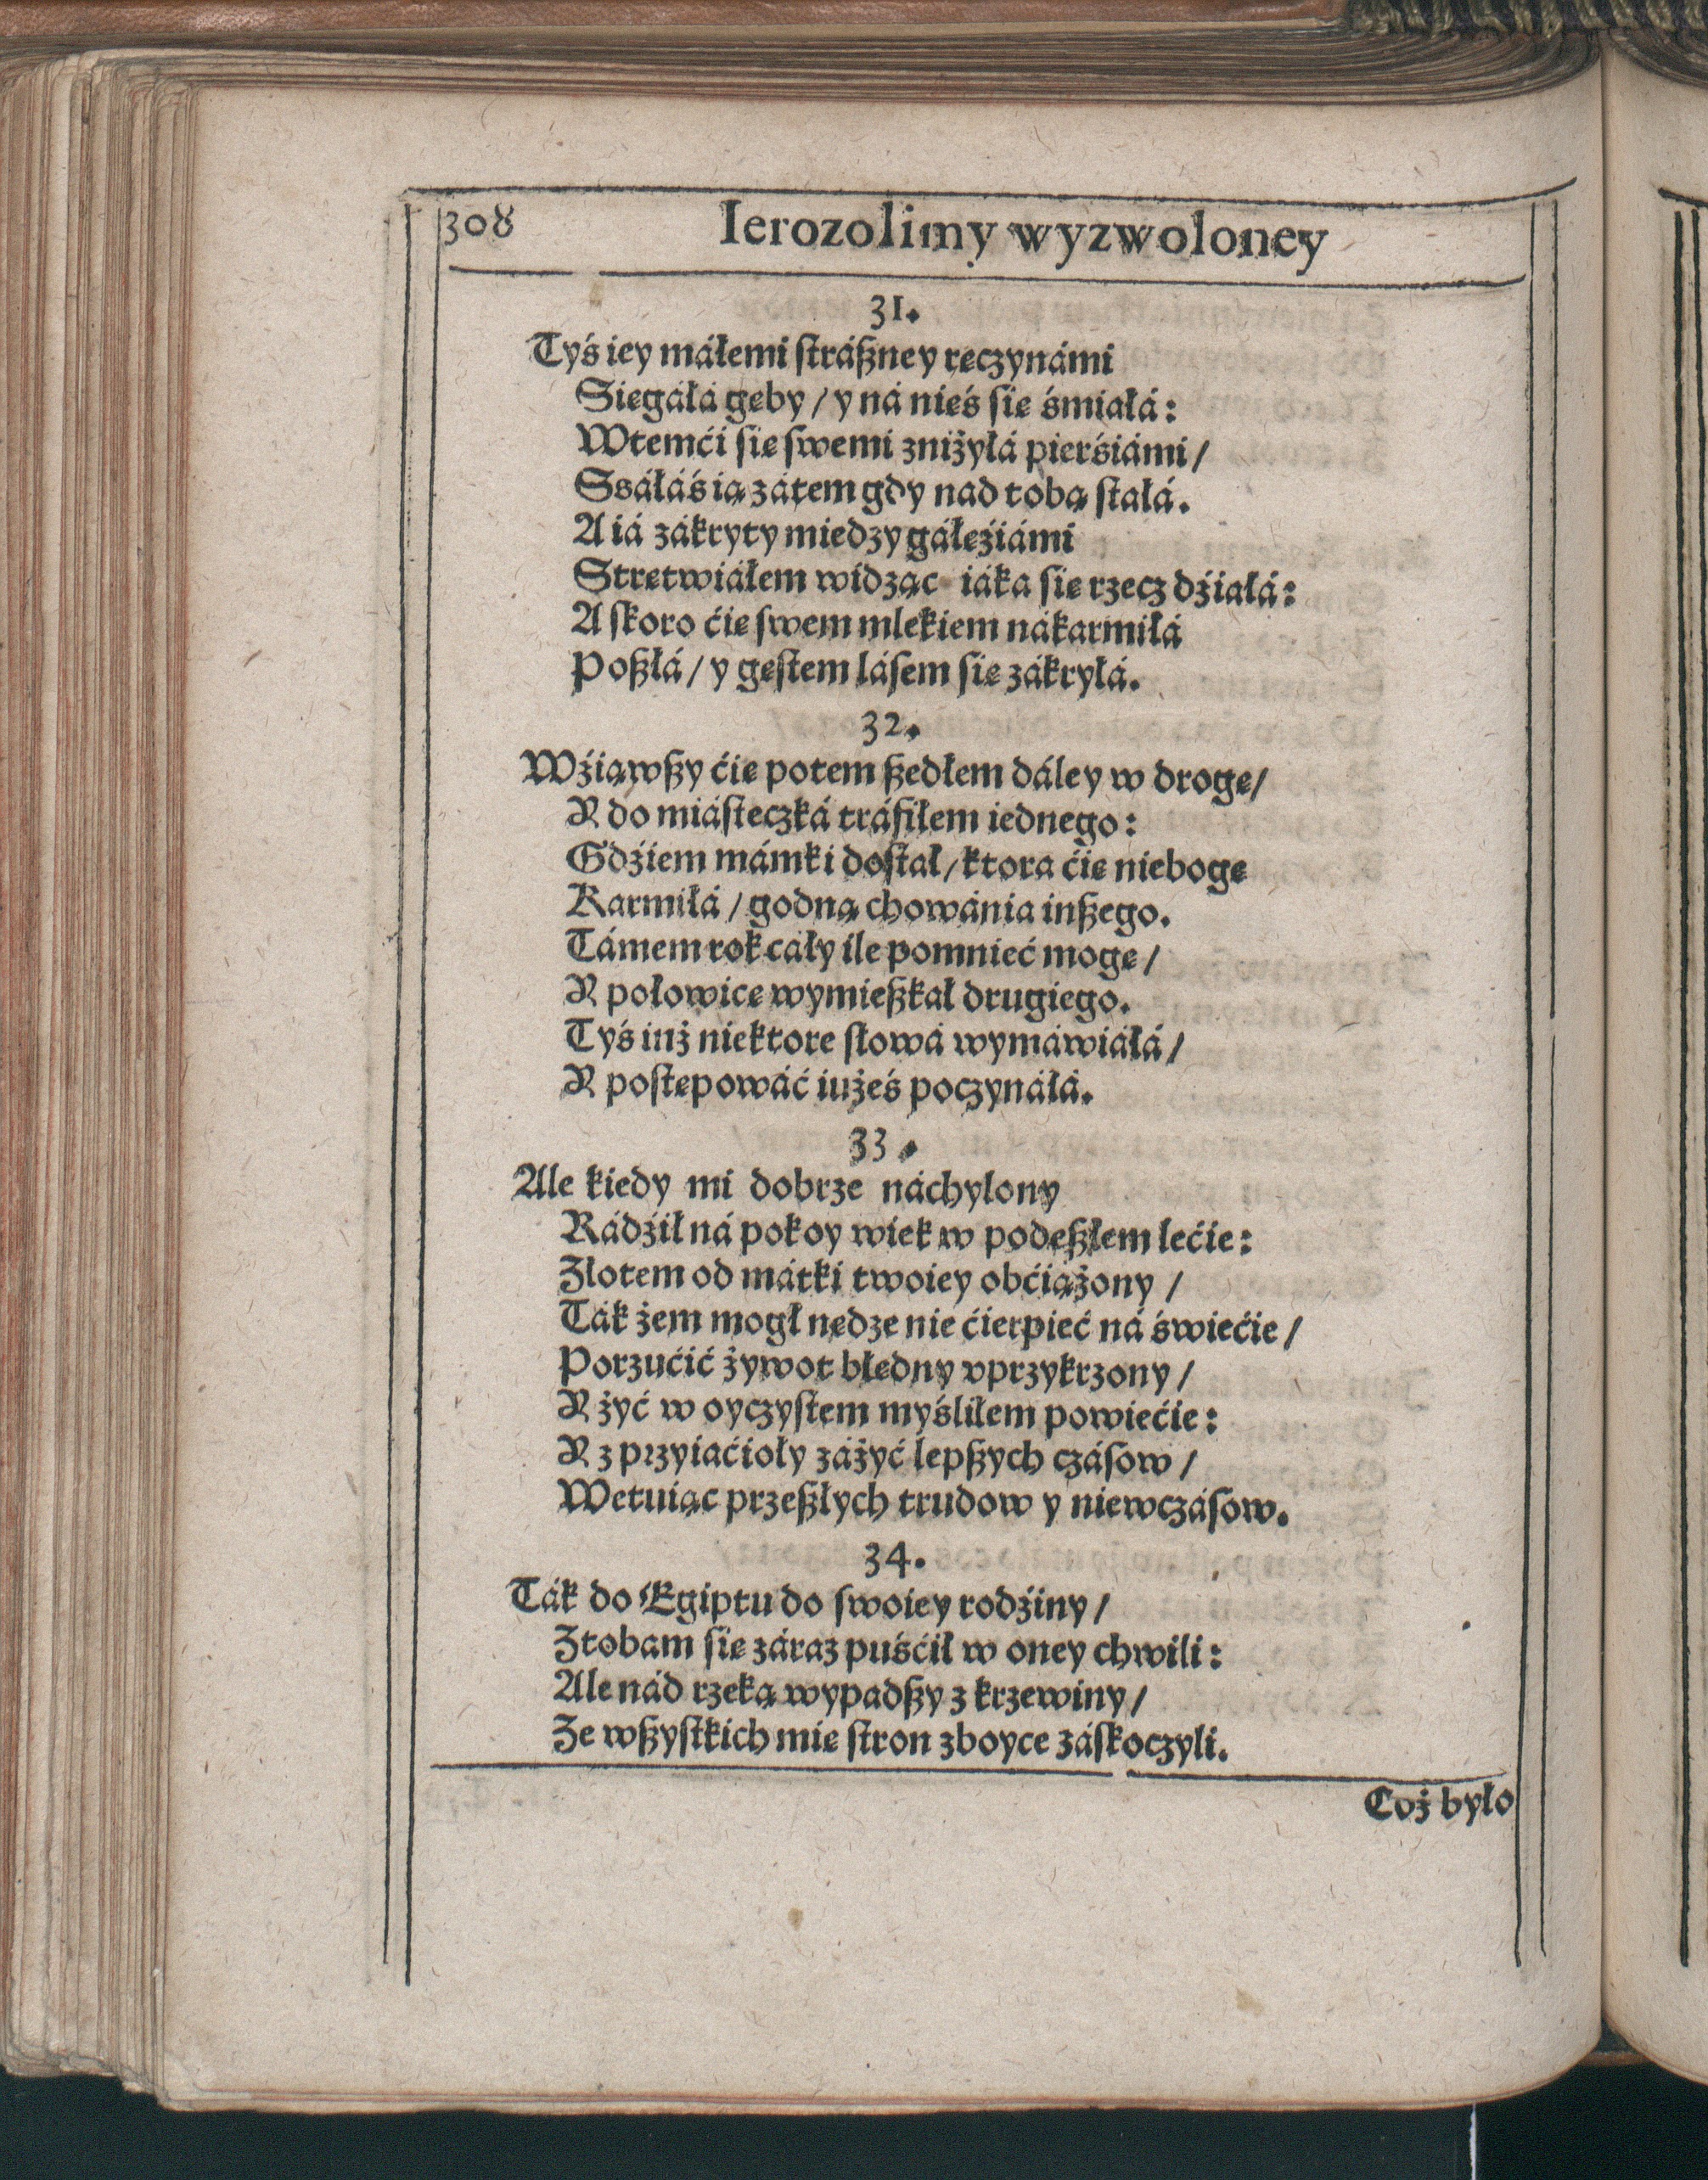 308 Ierozolimy wyzwoloney
31.
Tyś iey máłemi strászney ręczynámi
Sięgáłá gęby / y ná nięś się śmiałá:
Wtemći się swemi zniżyłá pierśiámi /
Ssáłáś ią zátem gdy nad tobą stałá.
A iá zákryty między gáłęźiámi
Strętwiáłem widząc iáka się rzecz dźiałá:
A skoro ćię swem mlekiem nákarmiłá
Poszłá / y gęstem lásem się zákryłá.
32.
Wźiąwszy ćię potem szedłem dáley w drogę /
Y do miásteczká tráfiłem iednego:
Gdźiem mámki dostał / ktora ćię niebogę
Karmiłá / godną chowánia inszego.
Támem rok cáły ile pomnieć mogę /
Y połowicę wymieszkał drugiego.
Tyś iuż niektore słowá wymáwiáłá /
Y postępowáć iużeś poczynáłá.
33.
Ale kiedy mi dobrze náchylony
Rádźił ná pokoy wiek w podeszłem lećie:
Złotem od mátki twoiey obćiążony /
Ták żem mogł nędze nie ćierpieć ná świećie /
Porzućić żywot błędny vprzykrzony /
Y żyć w oyczystem myśliłem powiećie:
Y z przyiaćioły záżyć lepszych czásow /
Wetuiąc przeszłych trudow y niewczásow.
34.
Ták do Egiptu do swoiey rodźiny /
Z tobam się záraz puśćił w oney chwili:
Ale nád rzeką wypadszy z krzewiny /
Ze wszystkich mię stron zboyce záskoczyli.
Coż było